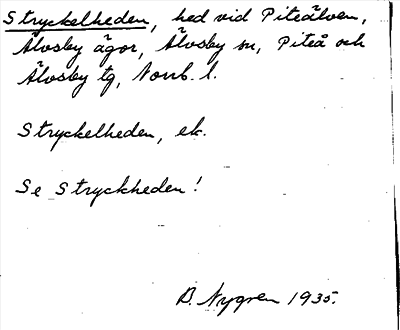 Stryckelheden, hed vid Piteälven,
Älvsby ägor, Älvsby sn, Piteå och
Älvsby tg, Norrb. l.
Stryckelheden, ek.
Se Stryckheden!
B. Nygren 1935.